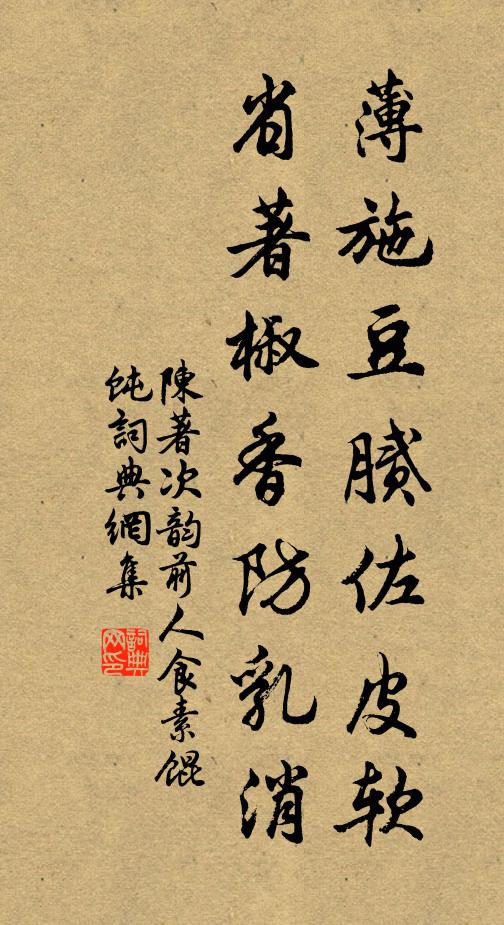 薄施豆膩佐皮軟
省著椒香防乳消
陳著次韵前人食素餛
飩詞典網集
詞典网印